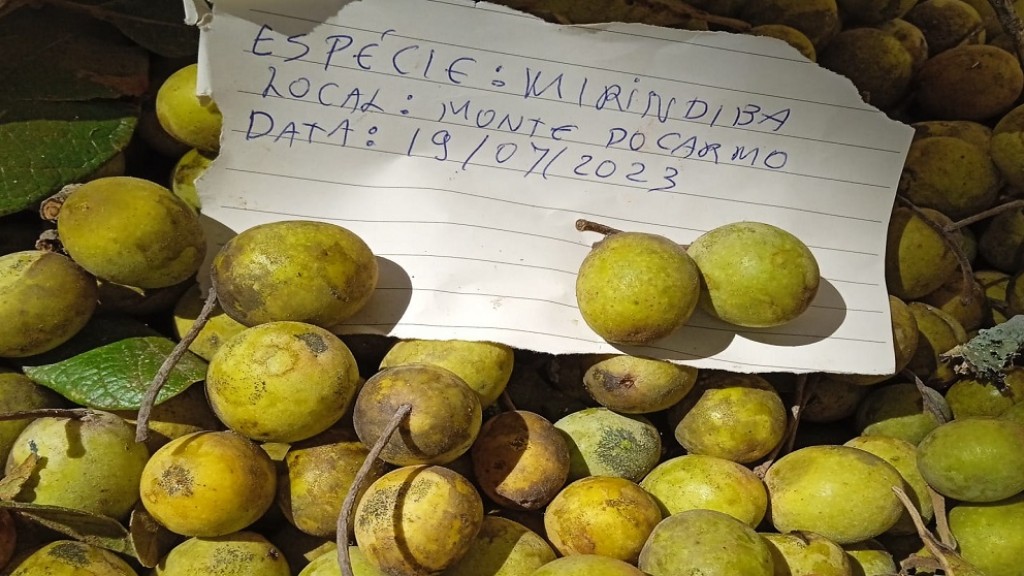 ESPÉCIE: MIRINDIBA
LOCAL: MONTE DO CARMO
DATA: 19/07/2023